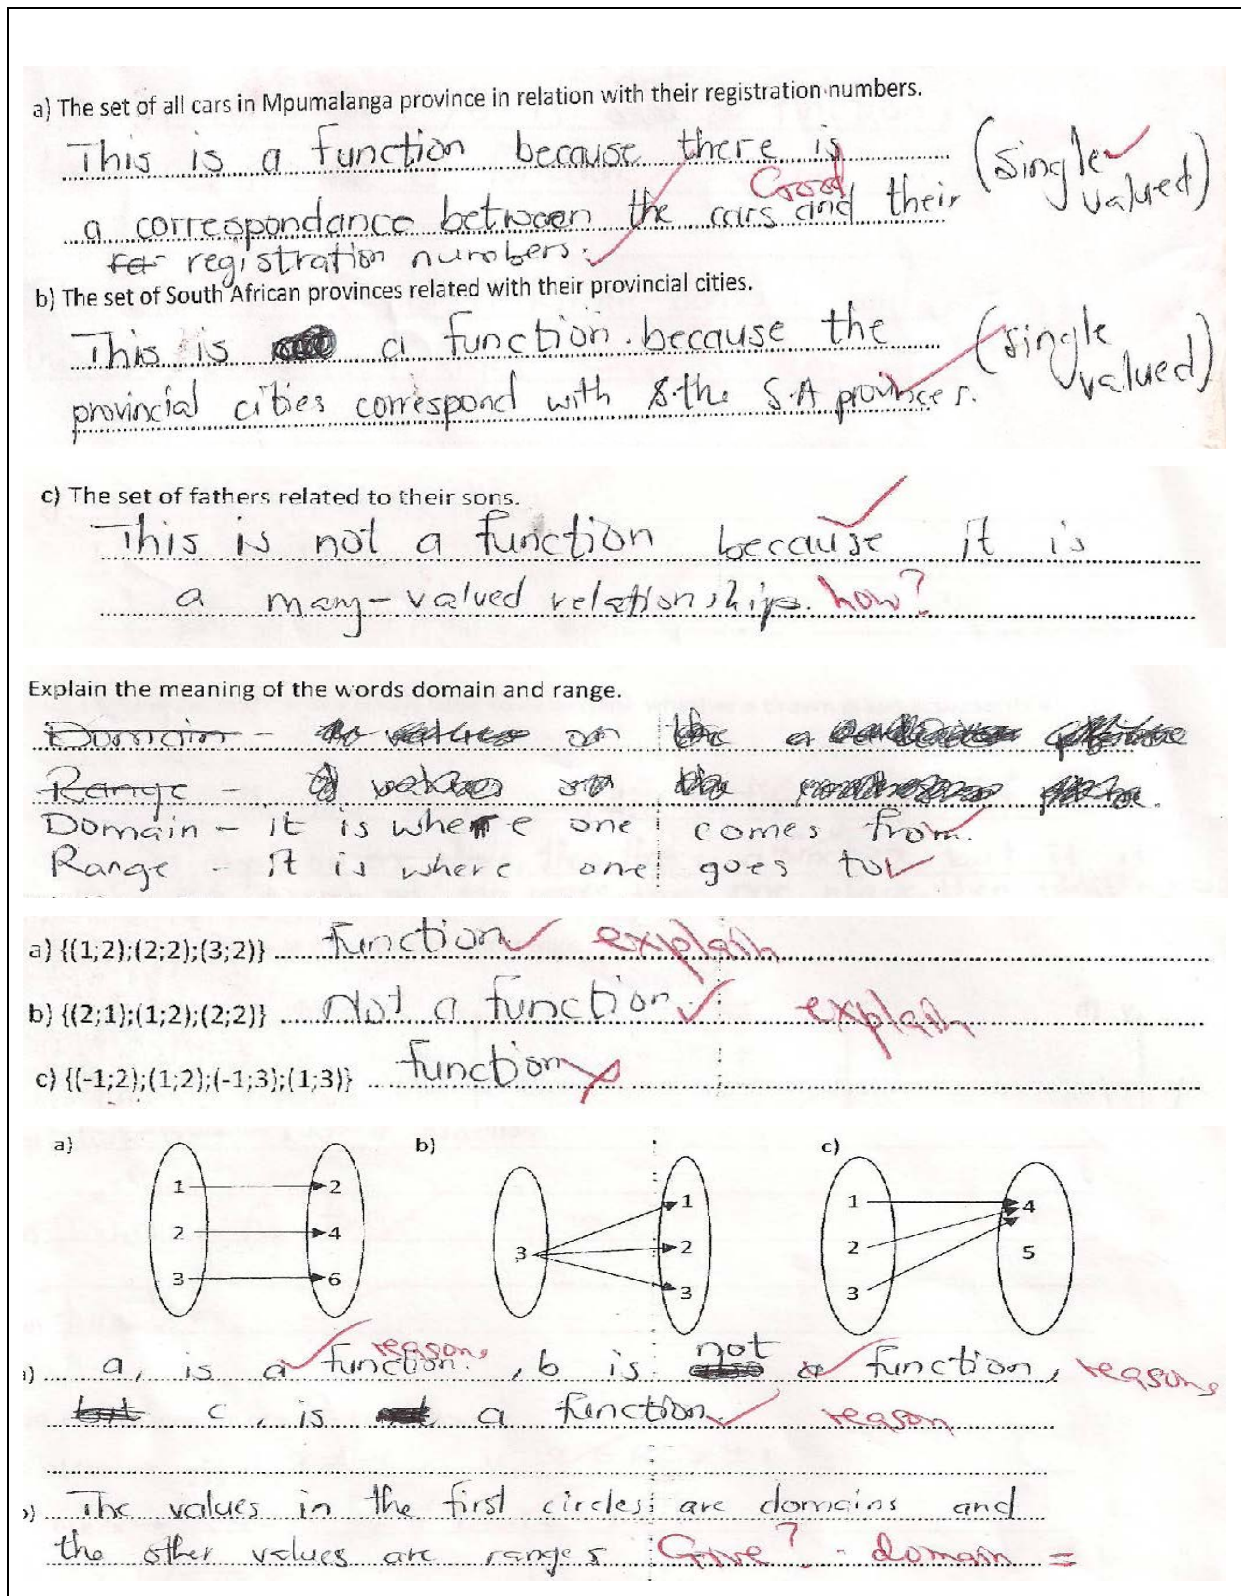 a) The set of all cars in Mpumalanga province in relation with their registration numbers.
This is a function because there is (single valued)
Good
a correspondance between the cars and their
registration numbers.
b) The set of South African provinces related with their provincial cities.
This is a function because the (single valued)
provincial cities correspond with the S.A provinces.
c) The set of fathers related to their sons.
This is not a function because it is
a many-valued relationships. how?
Explain the meaning of the words domain and range.
Domain -
Range -
Domain - it is where one comes from.
Range - it is where one goes to
a) {(1;2);(2;2);(3;2)} function explain
b) {(2;1);(1;2);(2;2)} Not a function explain
c) {(-1;2);(1;2);(-1;3);(1;3)} function
a) b) c)
1 2 1 1 4
2 4 3 2 2 5
3 6 3 3
a, is a function. reasons, b is not a function, reasons
but c, is a function reason
The values in the first circles are domains and
the other values are ranges Give? - domain =